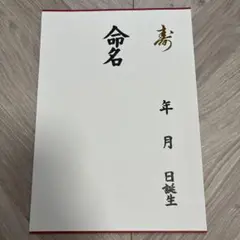 寿
年 月 日誕生
命名